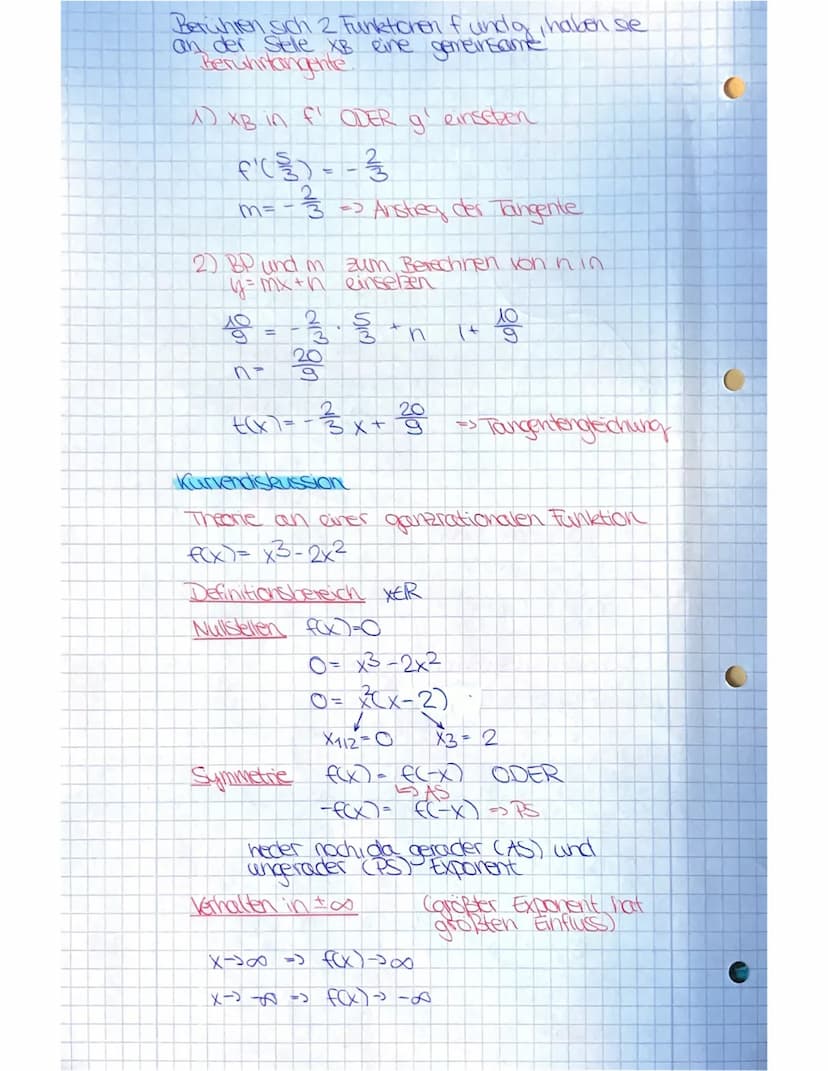 Berühren sich 2 Funktionen f und g, haben sie
an der Stelle xB eine gemeinsame
Berührtangente.
1) xB in f' ODER g' einsetzen
f'(5/3) = -2/3
m = -2/3 => Anstieg der Tangente
2) BP und m zum Berechnen von n in
y=mx+n einsetzen
10/9 = -2/3 · 5/3 + n |+ 10/9
n= 20/9
t(x)= -2/3 x + 20/9 => Tangentengleichung
Kurvendiskussion
Theorie an einer ganzrationalen Funktion
f(x)= x³-2x²
Definitionsbereich x∈R
Nullstellen f(x)=0
0= x³-2x²
0= x²(x-2)
x1/2=0 x3=2
Symmetrie f(x) = f(-x) ODER
↳ AS
-f(x)= f(-x) => PS
weder noch, da gerader (AS) und
ungerader (PS) Exponent
Verhalten in ±∞ (größter Exponent hat
größten Einfluss)
x->∞ => f(x)->∞
x-> -∞ => f(x)-> -∞